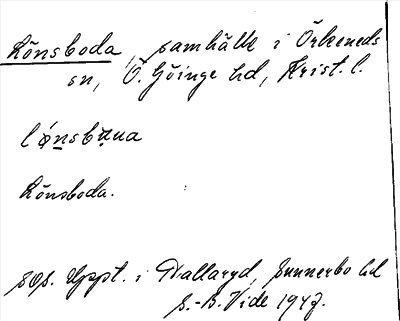 Lönsboda, samhälle i Örkeneds
sn, Ö. Göinge hd, Krist. l.
lónsbua
Lönsboda.
sos. Uppt. i Hallaryd, Sunnerbo hd
S.-B. Vide 1947.